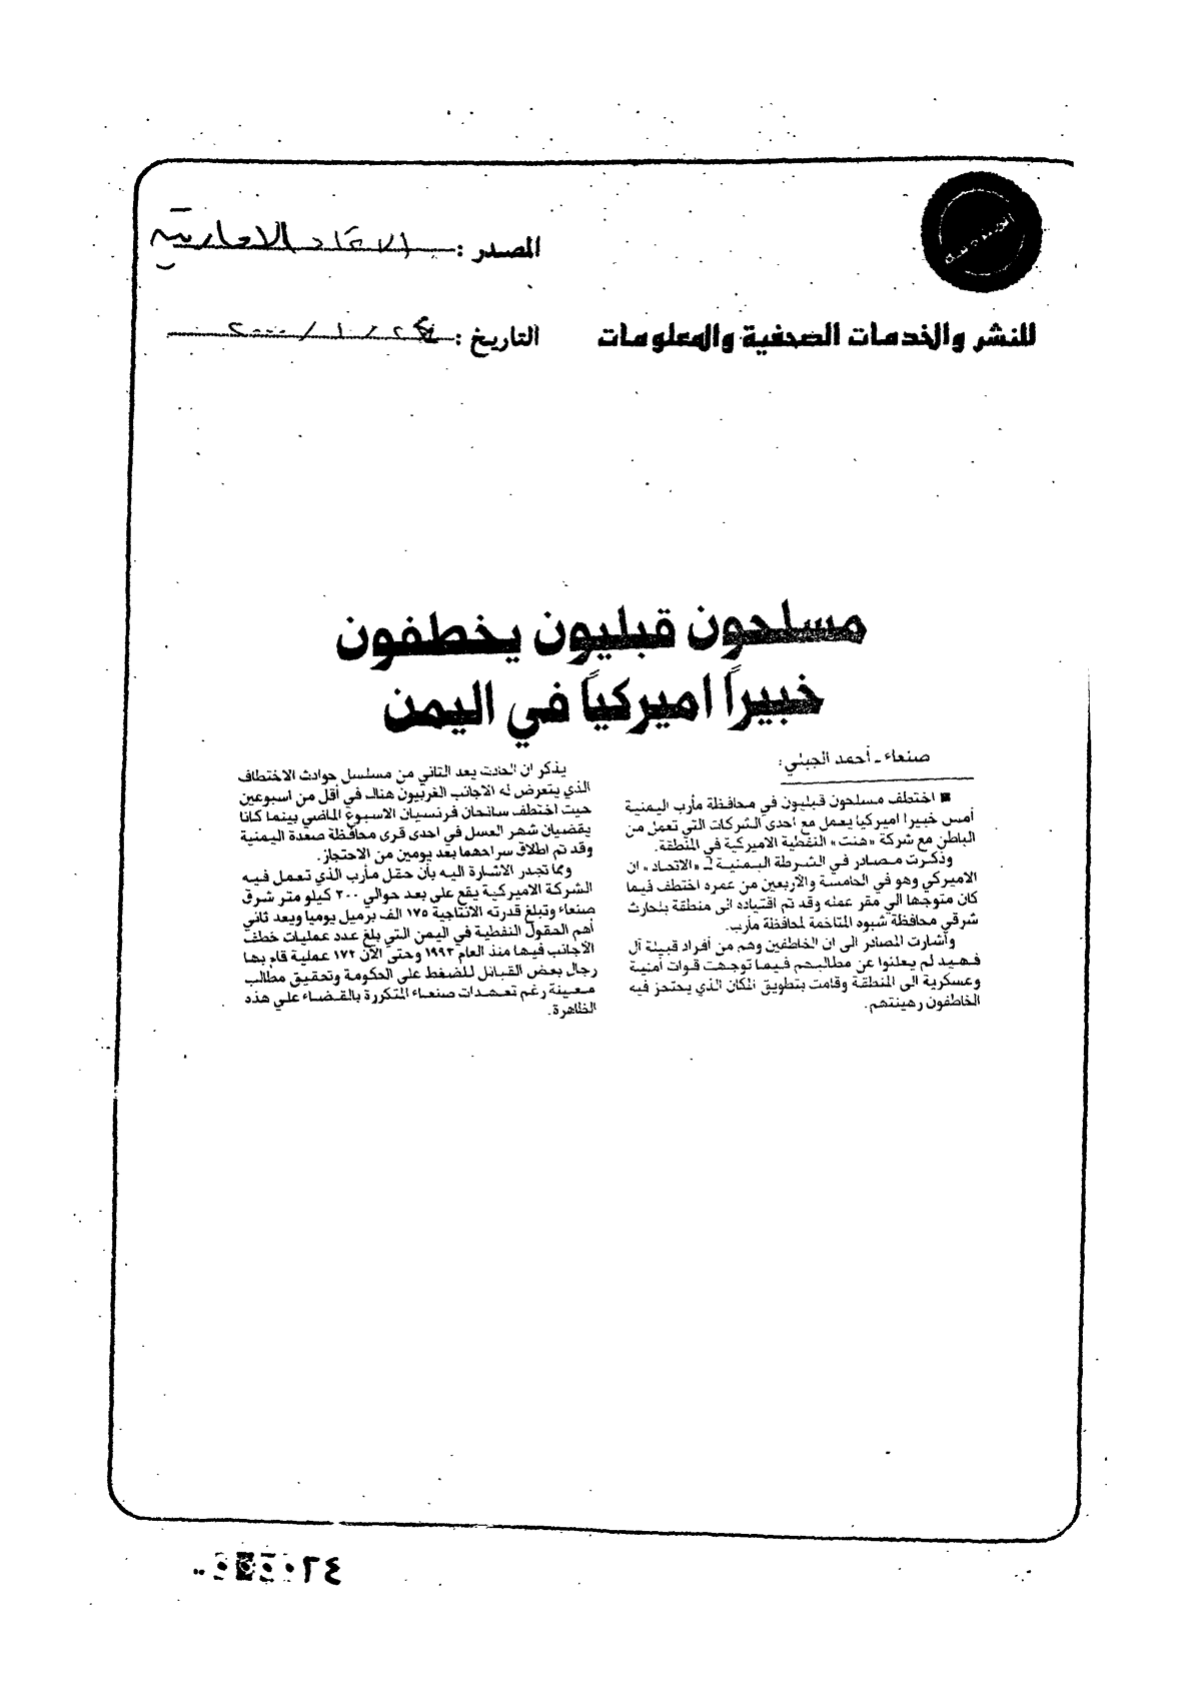 المصدر : الاتحاد الاماراتية
للنشر والخدمات الصحفية والمعلومات
التاريخ : ٢٤ / ١ / ٢٠٠٠
مسلحون قبليون يخطفون
خبيراً اميركياً في اليمن
صنعاء - أحمد الجبلي:
■ اختطف مسلحون قبليون في محافظة مأرب اليمنية
أمس خبيرا اميركيا يعمل مع أحدى الشركات التي تعمل من
الباطن مع شركة «هنت» النفطية الاميركية في المنطقة.
وذكرت مصادر في الشرطة اليمنية لـ «الاتحاد» ان
الاميركي وهو في الخامسة والأربعين من عمره اختطف فيما
كان متوجها الي مقر عمله وقد تم اقتياده الى منطقة بلحارث
شرقي محافظة شبوه المتاخمة لمحافظة مأرب.
وأشارت المصادر الى ان الخاطفين وهم من أفراد قبيلة آل
فهيد لم يعلنوا عن مطالبهم فيما توجهت قوات أمنية
وعسكرية الى المنطقة وقامت بتطويق المكان الذي يحتجز فيه
الخاطفون رهينتهم.
يذكر ان الحادث يعد الثاني من مسلسل حوادث الاختطاف
الذي يتعرض له الاجانب الغربيون هناك في أقل من اسبوعين
حيث اختطف سائحان فرنسيان الاسبوع الماضي بينما كانا
يقضيان شهر العسل في احدى قرى محافظة صعدة اليمنية
وقد تم اطلاق سراحهما بعد يومين من الاحتجاز.
ومما تجدر الاشارة اليه بأن حقل مأرب الذي تعمل فيه
الشركة الاميركية يقع على بعد حوالي ٢٠٠ كيلو متر شرق
صنعاء وتبلغ قدرته الانتاجية ١٧٥ الف برميل يوميا ويعد ثاني
أهم الحقول النفطية في اليمن التي بلغ عدد عمليات خطف
الأجانب فيها منذ العام ١٩٩٣ وحتى الآن ١٧٢ عملية قام بها
رجال بعض القبائل للضغط على الحكومة وتحقيق مطالب
معينة رغم تعهدات صنعاء المتكررة بالقضاء علي هذه
الظاهرة.